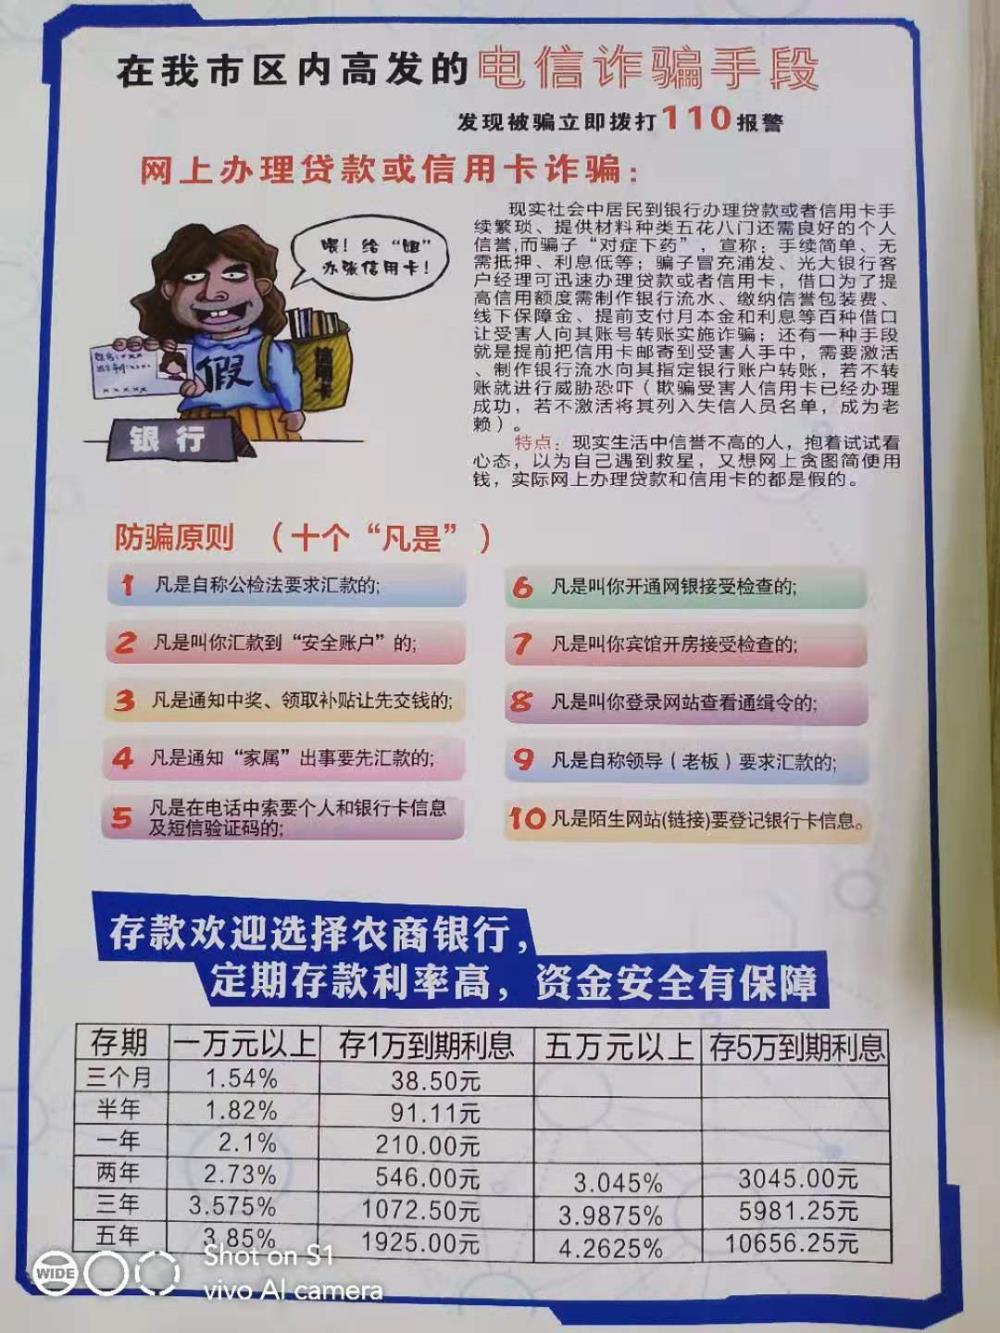 在我市区内高发的电信诈骗手段
发现被骗立即拨打110报警
网上办理贷款或信用卡诈骗：
喂！给“姐”
办张信用卡！
假
信用卡
银行
现实社会中居民到银行办理贷款或者信用卡手
续繁琐、提供材料种类五花八门还需良好的个人
信誉,而骗子“对症下药”，宣称：手续简单、无
需抵押、利息低等；骗子冒充浦发、光大银行客
户经理可迅速办理贷款或者信用卡，借口为了提
高信用额度需制作银行流水、缴纳信誉包装费、
线下保障金、提前支付月本金和利息等百种借口
让受害人向其账号转账实施诈骗；还有一种手段
就是提前把信用卡邮寄到受害人手中，需要激活
、制作银行流水向其指定银行账户转账，若不转
账就进行威胁恐吓（欺骗受害人信用卡已经办理
成功，若不激活将其列入失信人员名单，成为老
赖）。
特点：现实生活中信誉不高的人，抱着试试看
心态，以为自己遇到救星，又想网上贪图简便用
钱，实际网上办理贷款和信用卡的都是假的。
防骗原则 （十个“凡是”）
1 凡是自称公检法要求汇款的;
2 凡是叫你汇款到“安全账户”的;
3 凡是通知中奖、领取补贴让先交钱的;
4 凡是通知“家属”出事要先汇款的;
5 凡是在电话中索要个人和银行卡信息
及短信验证码的;
6 凡是叫你开通网银接受检查的;
7 凡是叫你宾馆开房接受检查的;
8 凡是叫你登录网站查看通缉令的;
9 凡是自称领导（老板）要求汇款的;
10 凡是陌生网站(链接)要登记银行卡信息。
存款欢迎选择农商银行，
定期存款利率高，资金安全有保障
存期 一万元以上 存1万到期利息 五万元以上 存5万到期利息
三个月 1.54% 38.50元
半年 1.82% 91.11元
一年 2.1% 210.00元
两年 2.73% 546.00元 3.045% 3045.00元
三年 3.575% 1072.50元 3.9875% 5981.25元
五年 3.85% 1925.00元 4.2625% 10656.25元
WIDE
Shot on S1
vivo AI camera